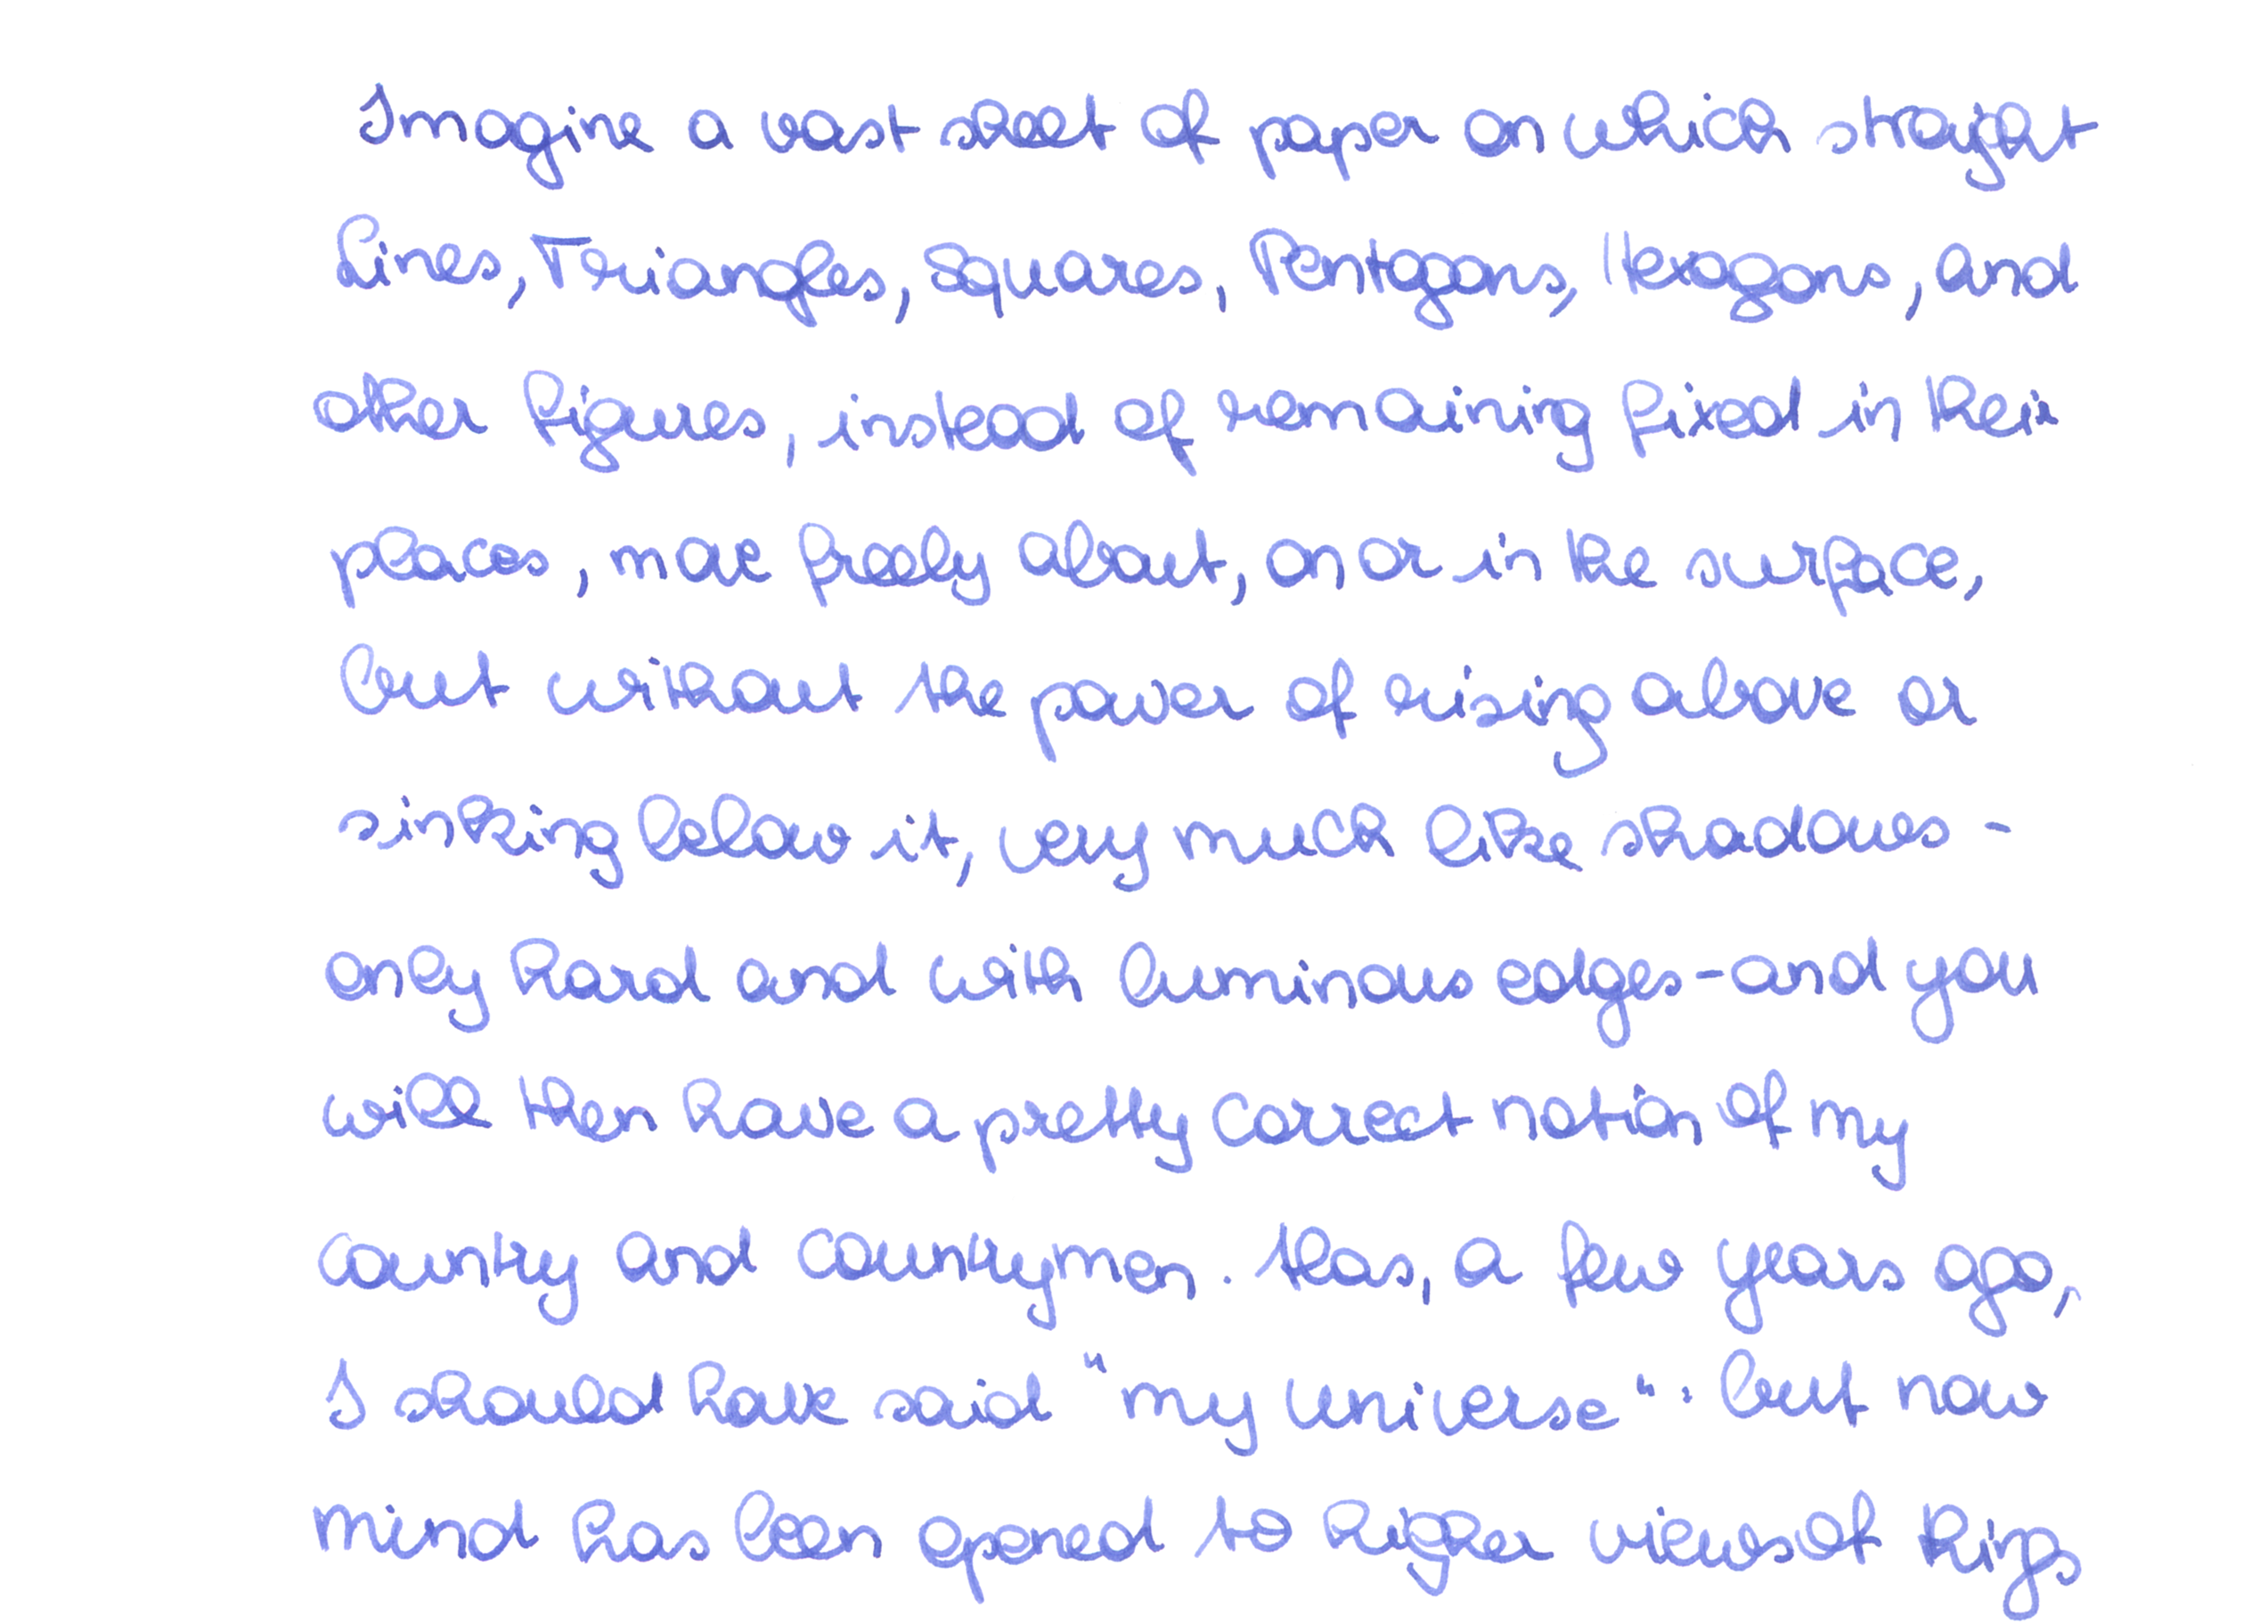 Imagine a vast sheet of paper on which straight
Lines, Triangles, Squares, Pentagons, Hexagons, and
other figures, instead of remaining fixed in their
places, move freely about, on or in the surface,
but without the power of rising above or
sinking below it, very much like shadows -
only hard and with luminous edges - and you
will then have a pretty correct notion of my
country and countrymen. Alas, a few years ago,
I should have said "my universe": but now
mind has been opened to higher views of things